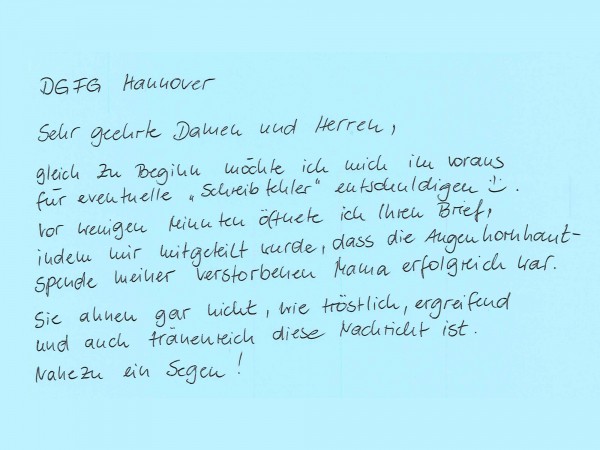 DGFG Hannover
Sehr geehrte Damen und Herren,
gleich zu Beginn möchte ich mich im voraus
für eventuelle „Schreibfehler" entschuldigen ☺.
Vor wenigen Minuten öffnete ich Ihren Brief,
indem mir mitgeteilt wurde, dass die Augenhornhaut-
spende meiner verstorbenen Mama erfolgreich war.
Sie ahnen gar nicht, wie tröstlich, ergreifend
und auch tränenreich diese Nachricht ist.
Nahezu ein Segen!